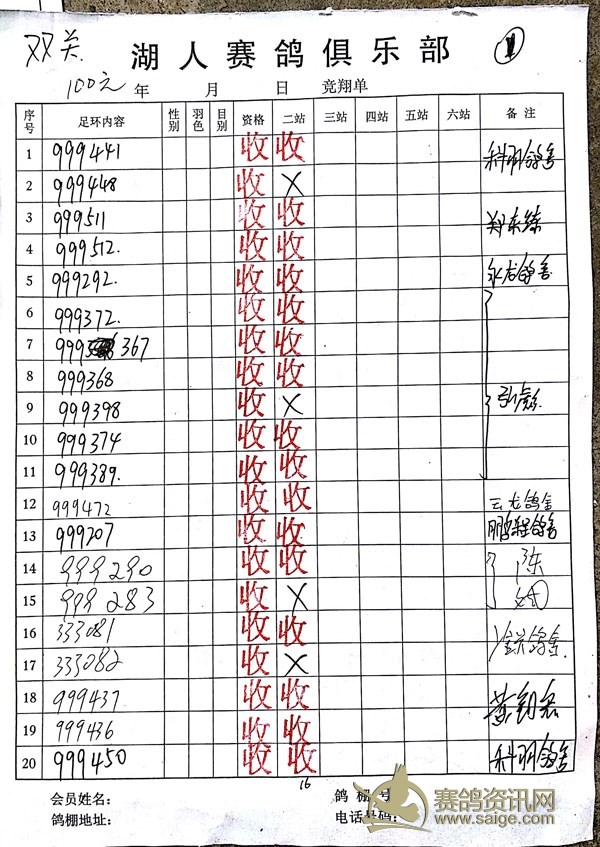 双关
湖人赛鸽俱乐部
1
100元 年 月 日 竞翔单
序号 足环内容 性别 羽色 目别 资格 二站 三站 四站 五站 六站 备注
1 999441 收 收 科羽鸽舍
2 999448 收 X
3 999511 收 收 郑东
4 999512. 收 收
5 999292. 收 收 永龙鸽舍
6 999372. 收 收
7 999 367 收 收
8 999368 收 收
9 999398 收 X
10 999374 收 收
11 999389. 收 收
12 999472 收 收 云龙鸽舍
13 999207 收 收 鹏程鸽舍
14 999290 收 收 陈
15 999283 收 X
16 333081 收 收 鸽舍
17 333082 收 X
18 999437 收 收 黄
19 999436 收 收
20 999450 收 收 科羽鸽舍
16
会员姓名: 鸽棚号
鸽棚地址: 电话号码:
赛鸽资讯网
www.saige.com